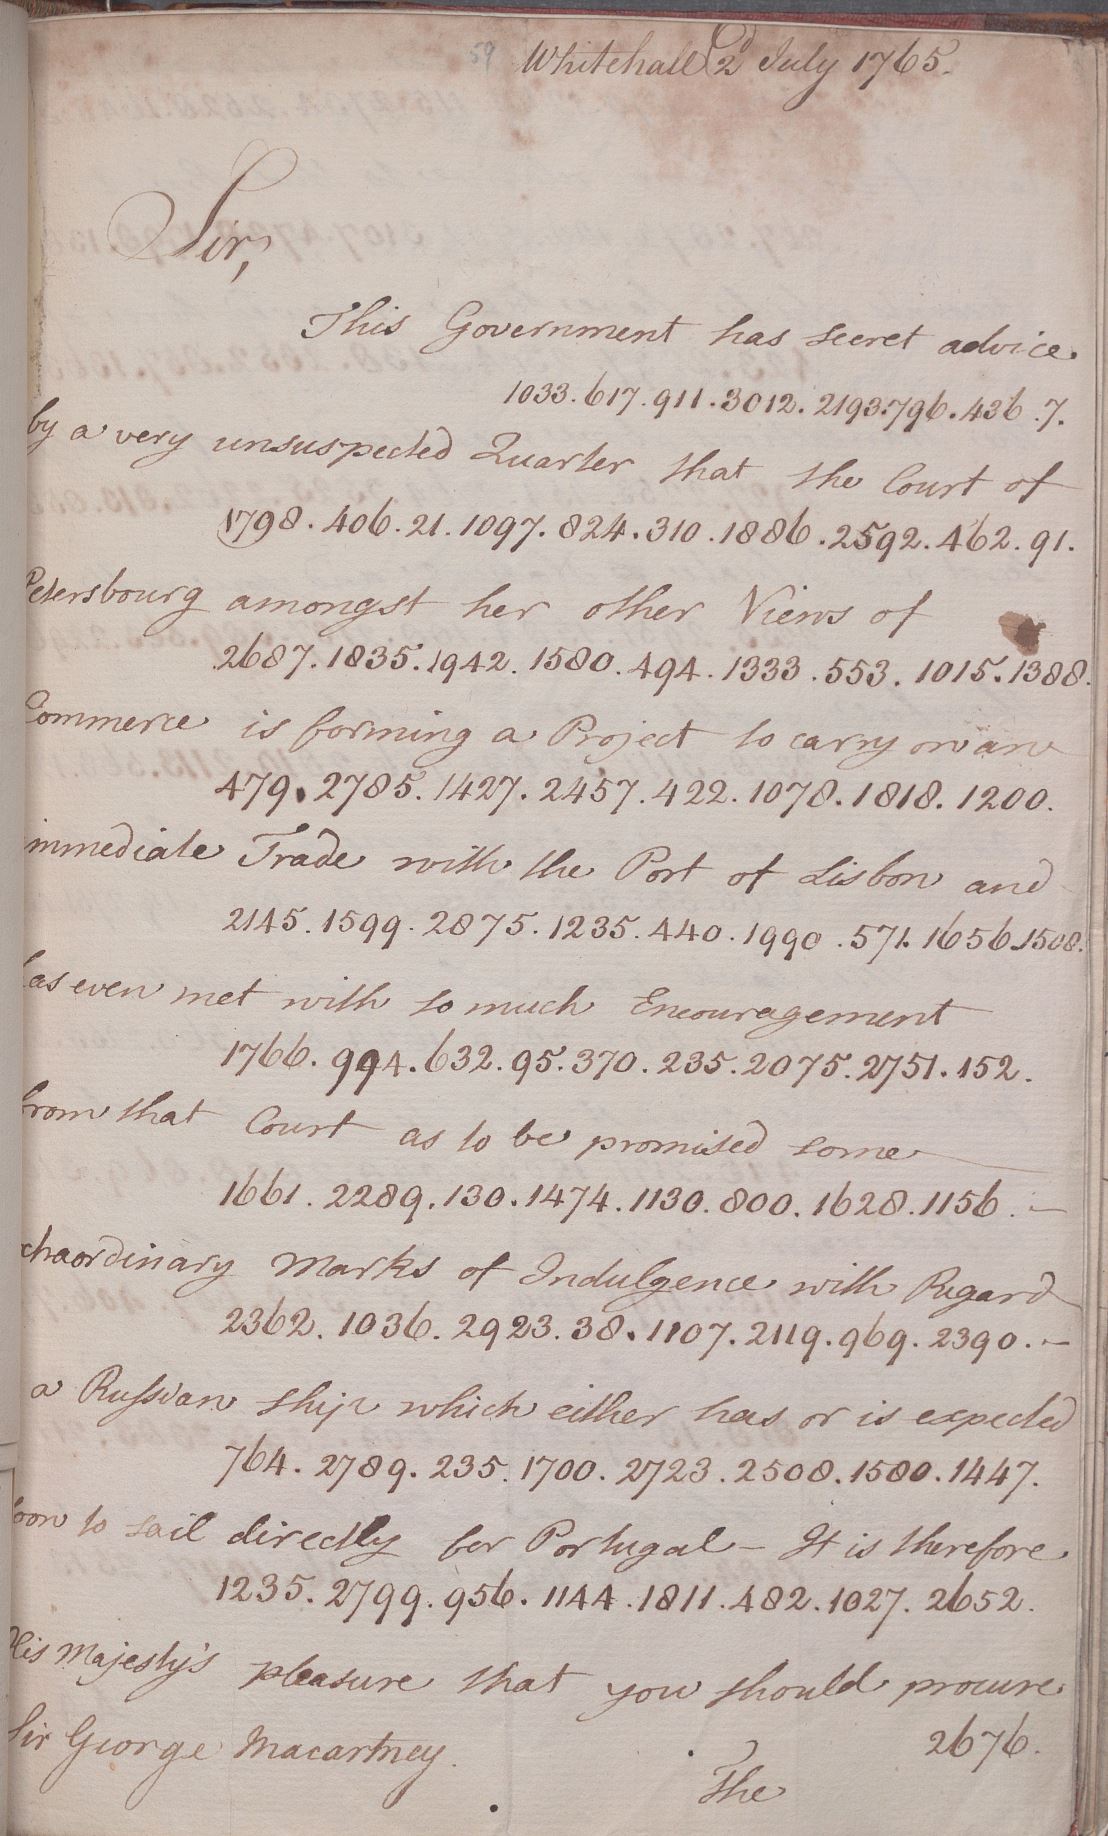 59 Whitehall 2d July 1765.
Sir,
This Government has secret advice
1033. 617. 911. 3012. 2193. 796. 436. 7.
by a very unsuspected Quarter that the Court of
1798. 406. 21. 1097. 824. 310. 1886. 2592. 462. 91.
Petersbourg amongst her other Views of
2687. 1835. 1942. 1580. 494. 1333. 553. 1015. 1388.
Commerce is forming a Project to carry on an
479. 2785. 1427. 2457. 422. 1078. 1818. 1200.
immediate Trade with the Port of Lisbon and
2145. 1599. 2875. 1235. 440. 1990. 571. 1656. 1508.
has even met with so much Encouragement
1766. 994. 632. 95. 370. 235. 2075. 2751. 152.
from that Court as to be promised some
1661. 2289. 130. 1474. 1130. 800. 1628. 1156. —
xtraordinary Marks of Indulgence with Regard
2362. 1036. 2923. 38. 1107. 2119. 969. 2390. —
a Russian Ship which either has or is expected
764. 2789. 235. 1700. 2723. 2508. 1580. 1447.
soon to sail directly for Portugal – It is therefore
1235. 2799. 956. 1144. 1811. 482. 1027. 2652.
His Majesty's pleasure that you should procure
2676.
Sir George Macartney.
The